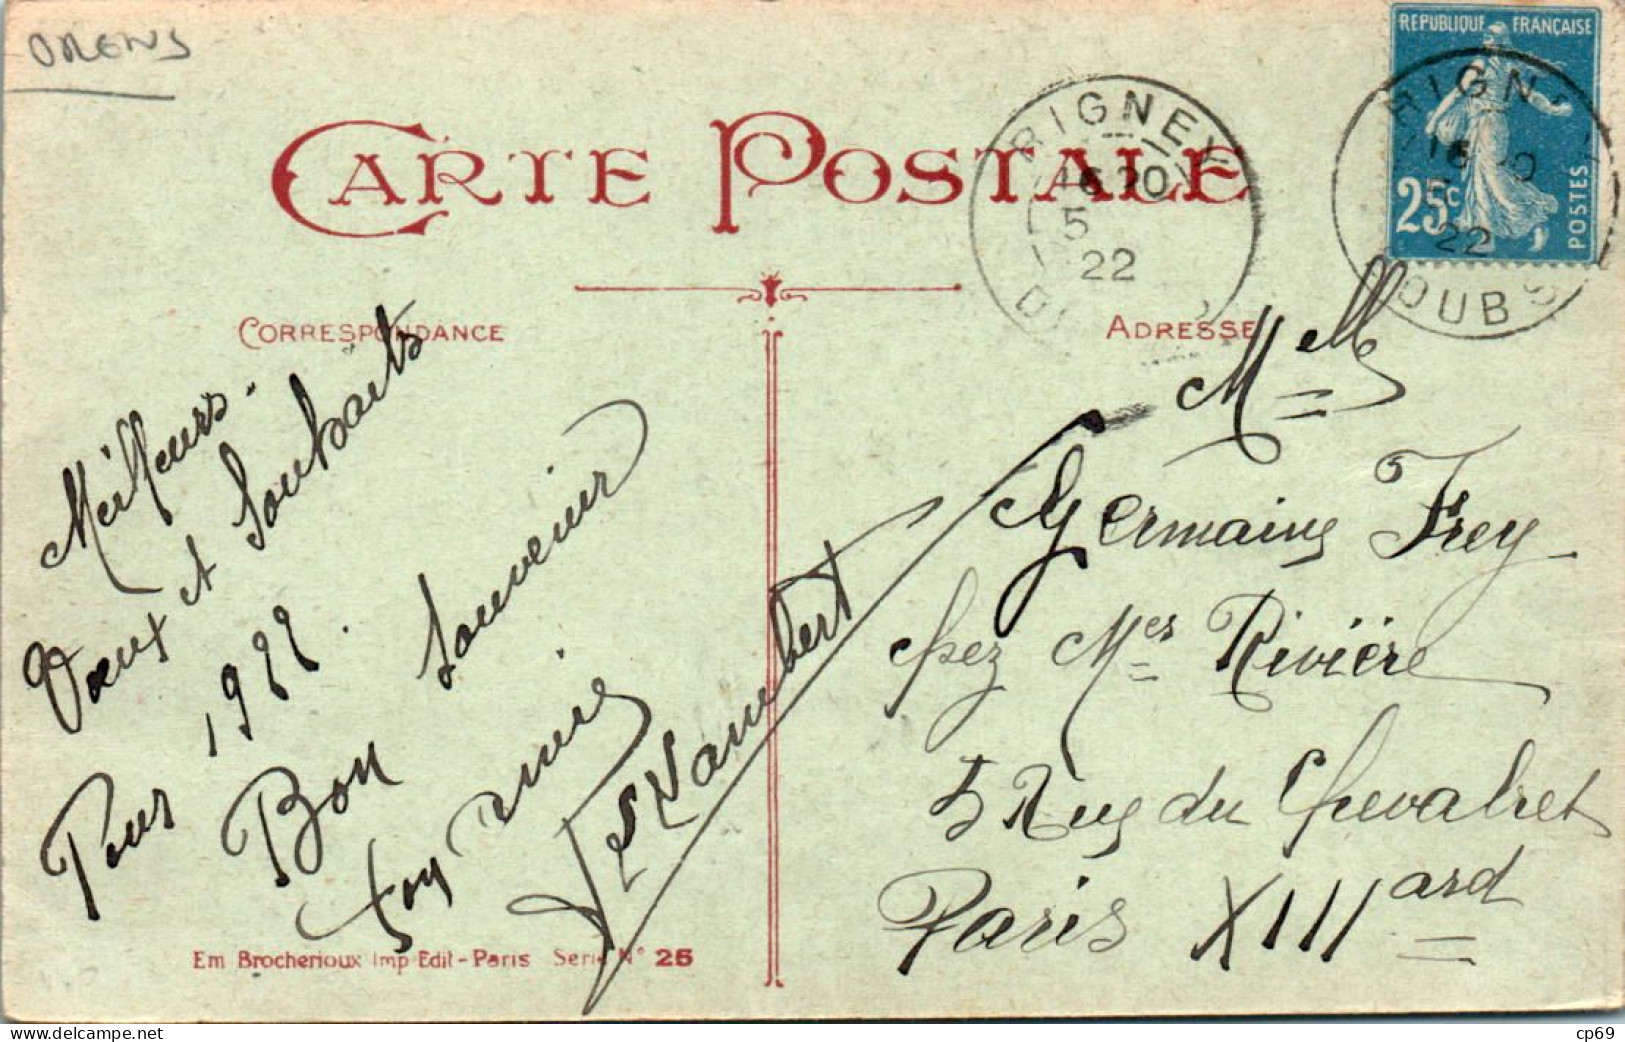 ORENS
CARTE POSTALE
RIGNEY
16 00
5
22
RÉPUBLIQUE FRANÇAISE
25c
POSTES
RIGN
16
22
DOUBS
CORRESPONDANCE
ADRESSE
Meilleurs
Vœux et Souhaits
Pour 1922.
Bon Souvenir
ton amie
Lambert
Melle
Germaine Frey
chez Mes Rivière
5 Rue du Chevalret
Paris XIII ard
Em Brocherioux Imp-Edit-Paris Serie N° 25
cp69